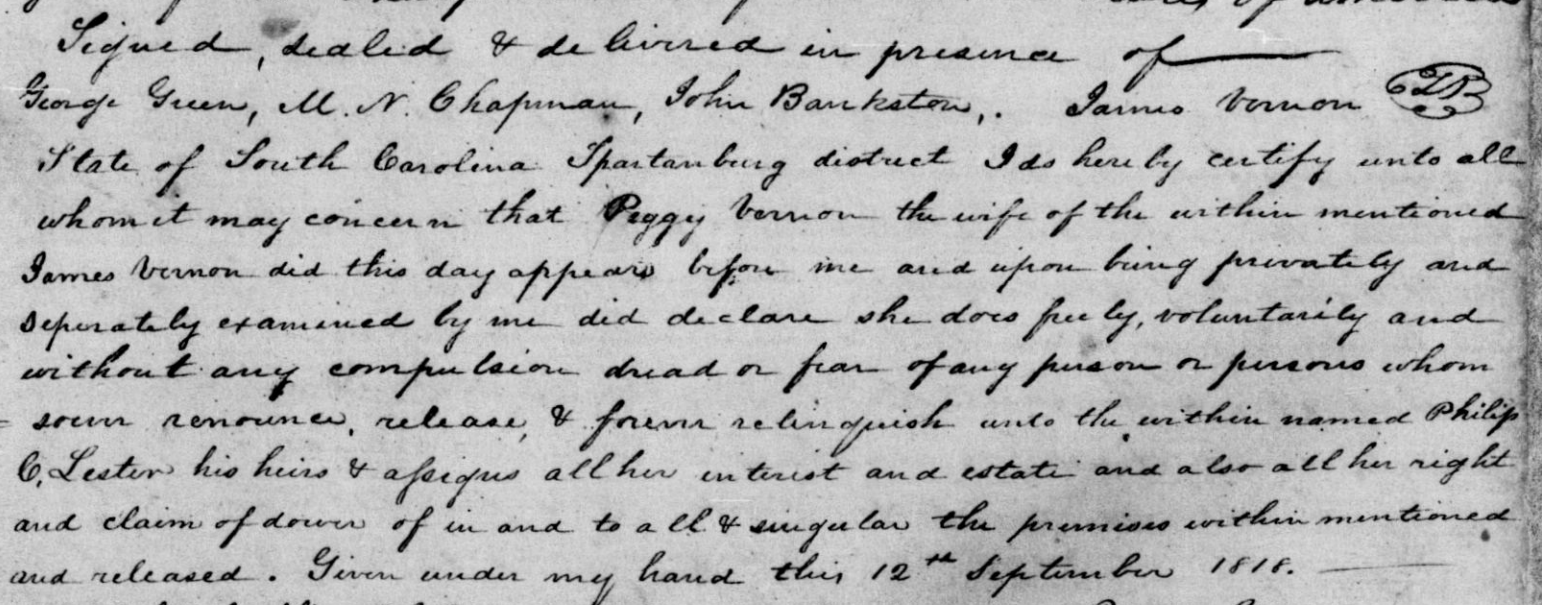 Signed, sealed & delivered in presence of
George Green, M. N. Chapman, John Bankston,. James Vernon
State of South Carolina Spartanburg district I do hereby certify unto all
whom it may concern that Peggy Vernon the wife of the within mentioned
James Vernon did this day appear before me and upon being privately and
seperately examined by me did declare she does freely, voluntarily and
without any compulsion dread or fear of any person or persons whom
= soever renounce, release, & forever relinquish unto the within named Philip
C, Lester his heirs & assigns all her interist and estate and also all her right
and claim of dower of in and to all & singular the premises within mentioned
and released. Given under my hand this 12th September 1818.